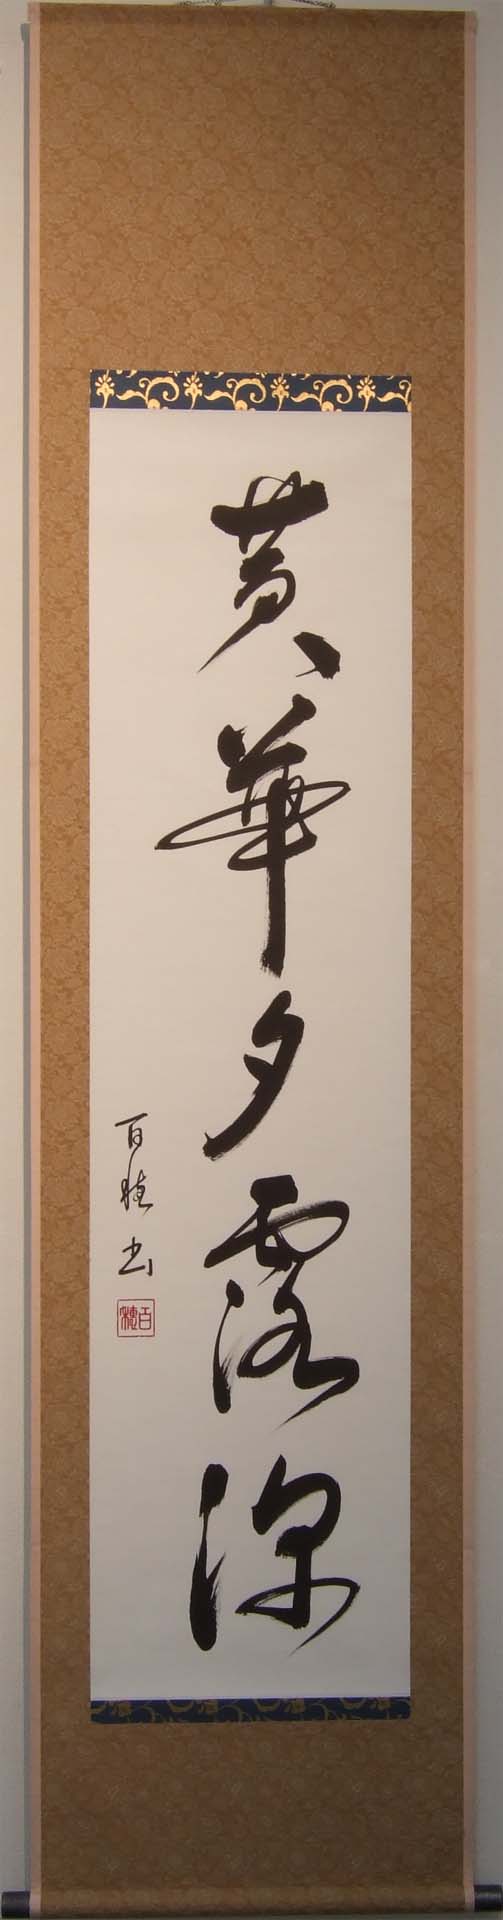 黄華夕露深
百穂書
百穂